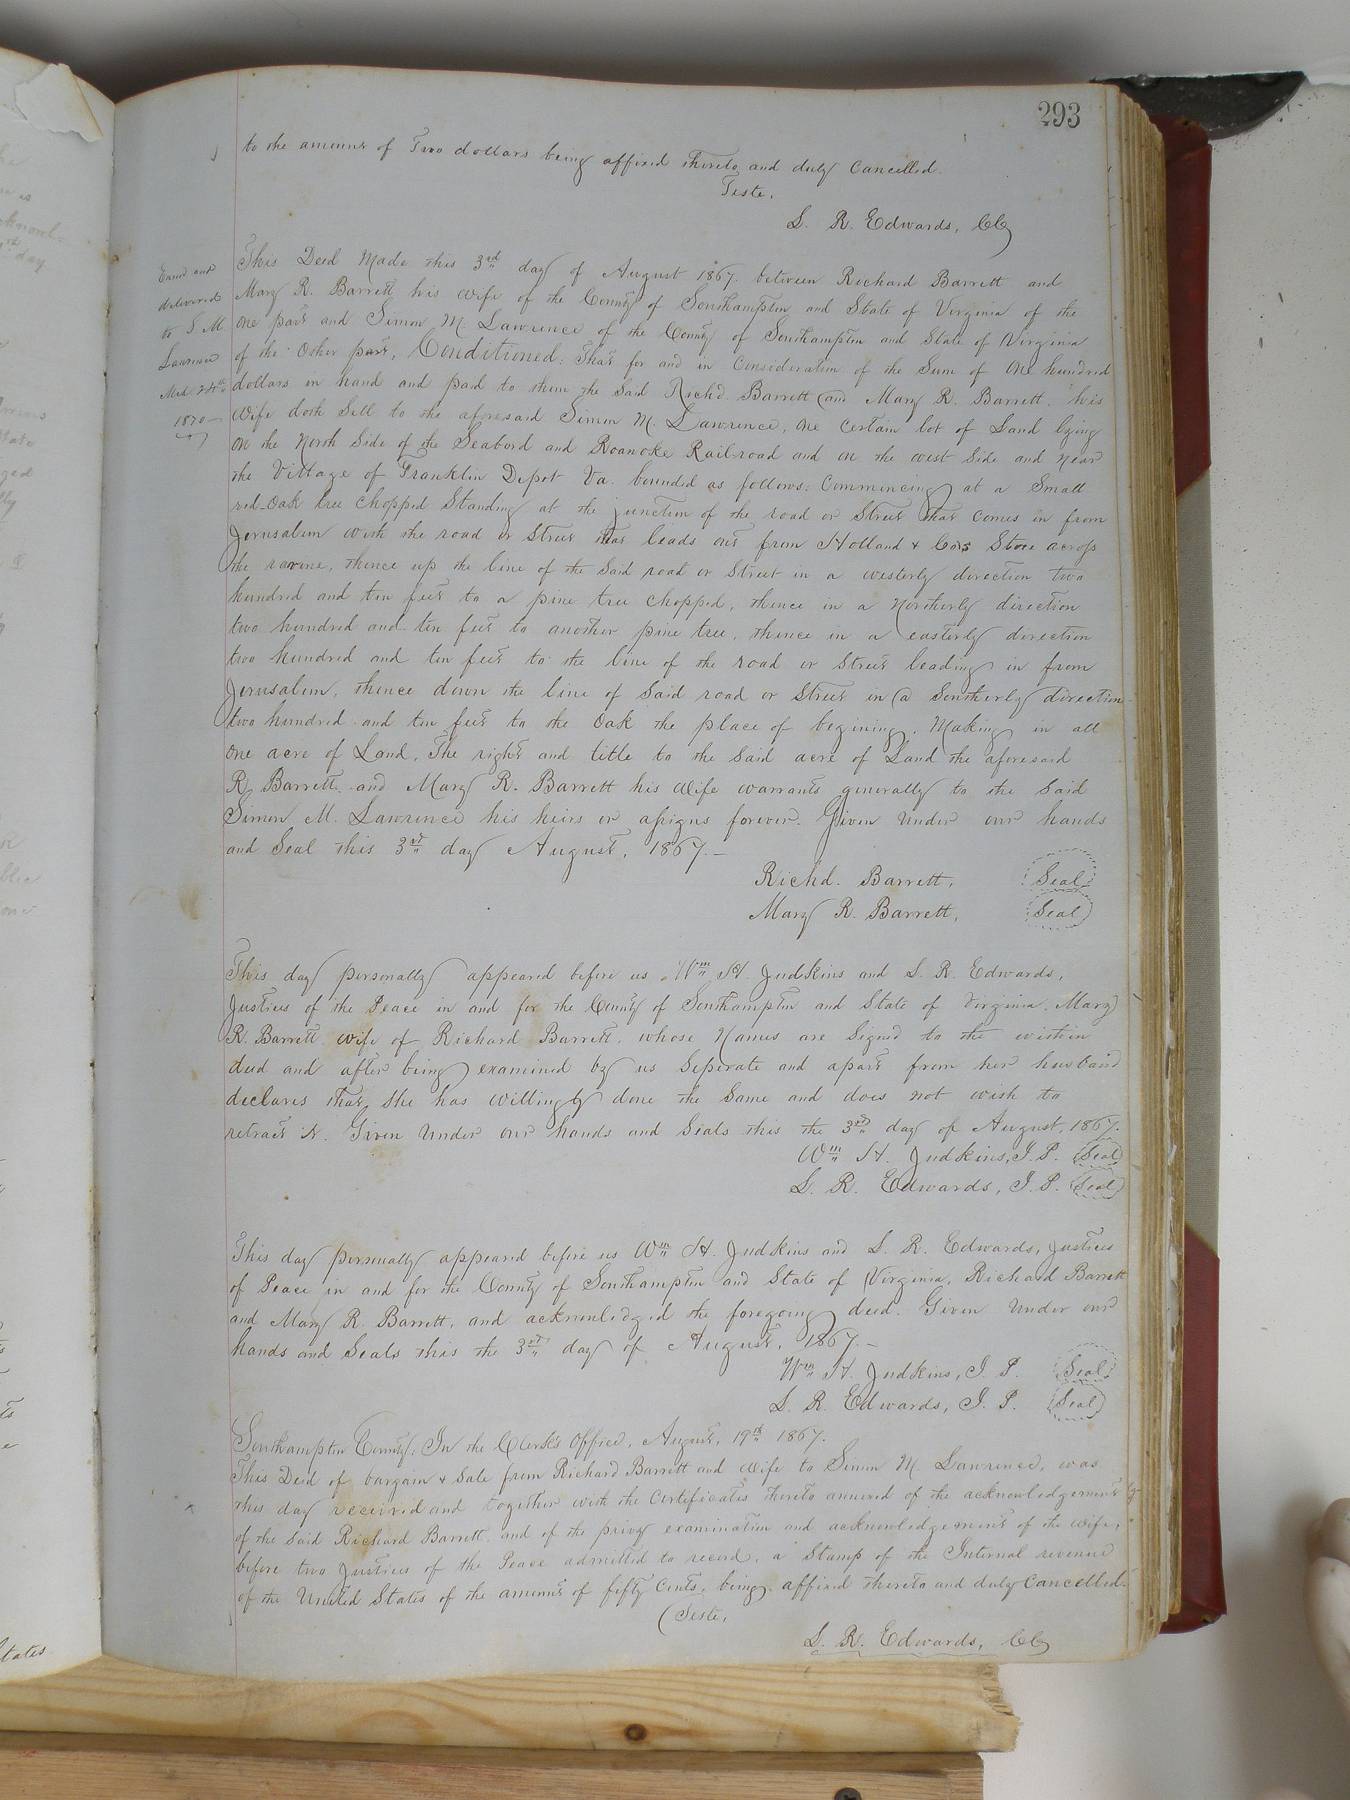 293
to the amount of Two dollars being affixed thereto and duly Cancelled.
Teste,
L. R. Edwards, CC
Exmd and
delivered
to S. M.
Lawrence
Mch 24th
1870
This Deed Made this 3rd day of August 1867. between Richard Barrett and
Mary R. Barrett his wife of the County of Southampton and State of Virginia of the
one part and Simon M. Lawrence of the County of Southampton and State of Virginia
of the Other part, Conditioned: That for and in Consideration of the Sum of One hundred
dollars in hand and paid to them the Said Richd. Barrett and Mary R. Barrett his
Wife doth Sell to the aforesaid Simon M. Lawrence, One Certain lot of Land lying
On the North Side of the Seabord and Roanoke Railroad and on the west Side and near
the Village of Franklin Depot Va. bounded as follows: Commencing at a Small
red-Oak tree Chopped Standing at the junction of the road or Street that Comes in from
Jerusalem with the road or Street that leads out from Holland & Co's Store across
the ravine, thence up the line of the Said road or Street in a westerly direction two
hundred and ten feet to a pine tree Chopped, thence in a Northerly direction
two hundred and ten feet to another pine tree, thence in a easterly direction
two hundred and ten feet to the line of the road or Street leading in from
Jerusalem, thence down the line of Said road or Street in a Southerly direction
two hundred and ten feet to the Oak the place of begining, Making in all
One acre of Land, The right and title to the Said acre of Land the aforesaid
R. Barrett and Mary R. Barrett his Wife warrants generally to the Said
Simon M. Lawrence his heirs or assigns forever. Given Under our hands
and Seal this 3rd day August, 1867.—
Richd. Barrett, Seal
Mary R. Barrett, Seal
This day personally appeared before us Wm H. Judkins and L. R. Edwards,
Justices of the Peace in and for the County of Southampton and State of Virginia, Mary
R. Barrett wife of Richard Barrett, whose Names are Signed to the within
deed and after being examined by us Seperate and apart from her husband
declares that She has willingly done the Same and does not wish to
retract it. Given Under our hands and Seals this the 3rd day of August, 1867.
Wm H. Judkins, J. P. Seal
L. R. Edwards, J. P. Seal
This day personally appeared before us Wm H. Judkins and L. R. Edwards, Justices
of Peace in and for the County of Southampton and State of Virginia, Richard Barrett
and Mary R. Barrett, and acknowledged the foregoing deed. Given Under our
hands and Seals this the 3rd day of August, 1867.—
Wm H. Judkins, J. P. Seal
L. R. Edwards, J. P. Seal
Southampton County, In the Clerk's Office, August, 19th 1867.
This Deed of bargain & Sale from Richard Barrett and Wife to Simon M. Lawrence, was
this day received and together with the Certificates thereto annexed of the acknowledgement
of the Said Richard Barrett and of the privy examination and acknowledgement of the Wife,
before two Justices of the Peace admitted to record, a Stamp of the Internal revenue
of the United States of the amount of fifty Cents, being affixed thereto and duly Cancelled.
Teste,
L. R. Edwards, CC